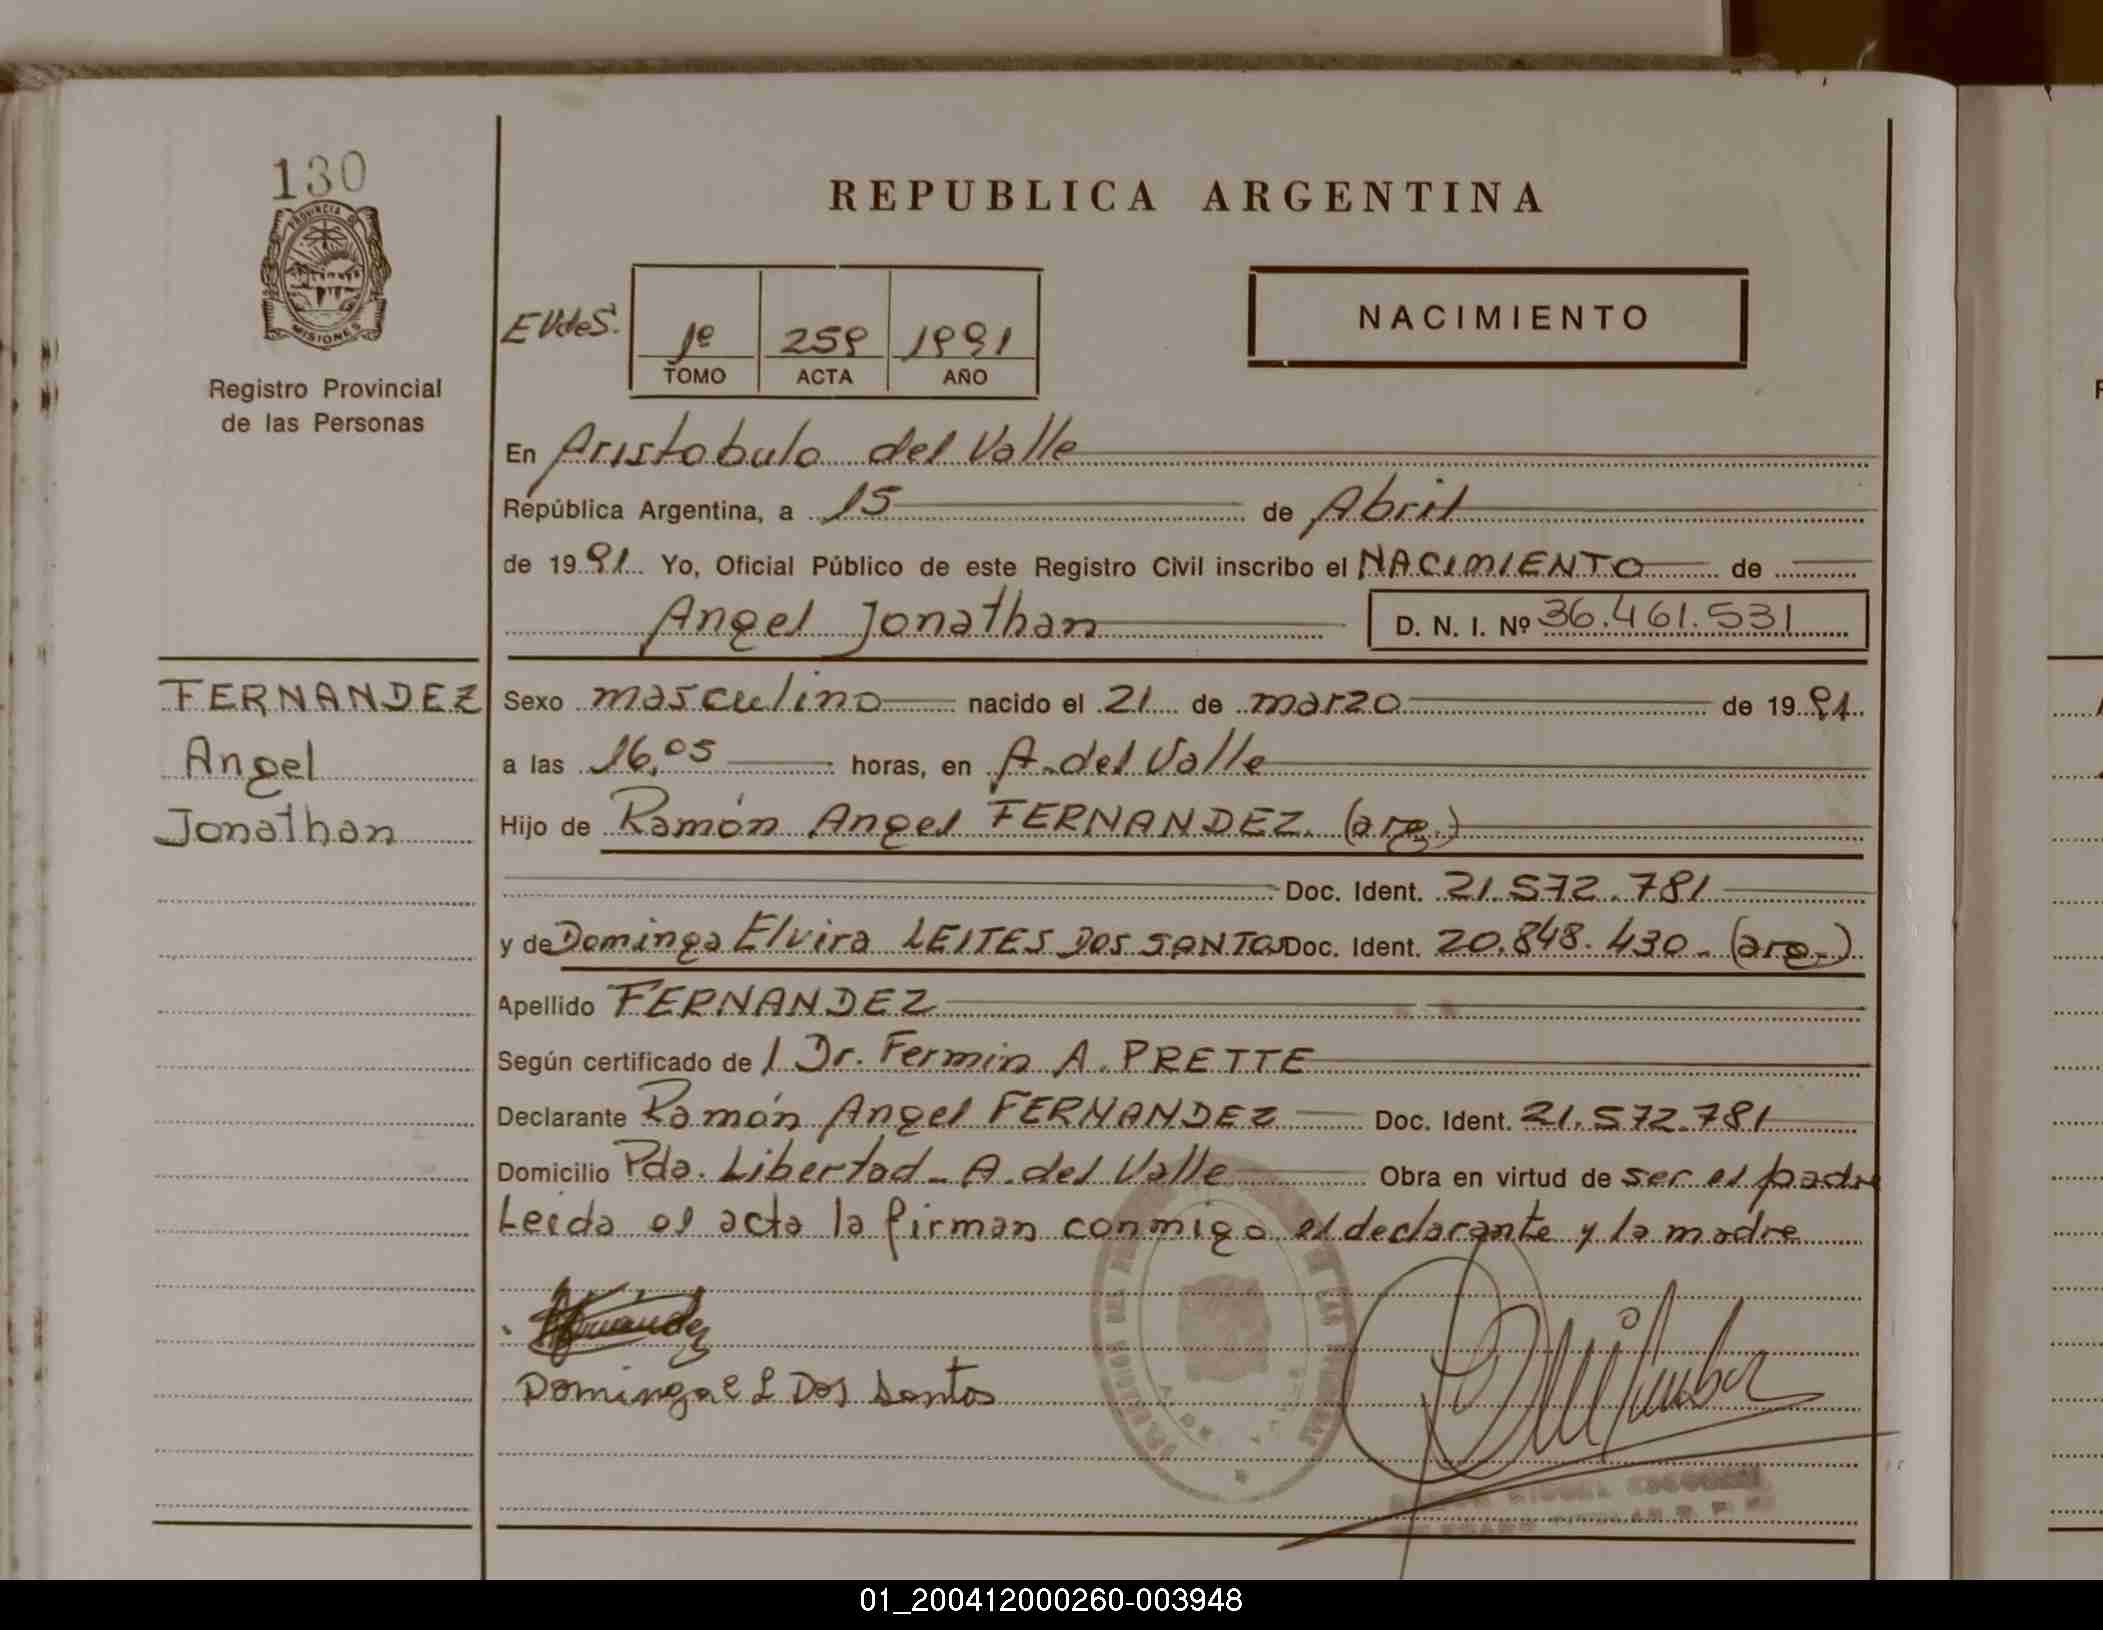 130
PROVINCIA DE
MISIONES
Registro Provincial
de las Personas
REPUBLICA ARGENTINA
NACIMIENTO
EVdeS.
1º 259 1991
TOMO ACTA AÑO
En Aristobulo del Valle
República Argentina, a 15 de Abril
de 1991 Yo, Oficial Público de este Registro Civil inscribo el NACIMIENTO de
Angel Jonathan D. N. I. Nº 36.461.531
FERNANDEZ
Angel
Jonathan
Sexo masculino nacido el 21 de marzo de 1991
a las 16,05 horas, en A. del Valle
Hijo de Ramón Angel FERNANDEZ. (arg.)
Doc. Ident. 21.572.781
y de Dominga Elvira LEITES DOS SANTOS Doc. Ident. 20.848.430. (arg.)
Apellido FERNANDEZ
Según certificado de l Dr. Fermin A. PRETTE
Declarante Ramón Angel FERNANDEZ Doc. Ident. 21.572.781
Domicilio Pda. Libertad - A. del Valle Obra en virtud de ser el padre
Leida el acta la firman conmigo el declarante y la madre
Fernandez
Dominga E L Dos Santos
DE LAS PERSONAS
01_200412000260-003948